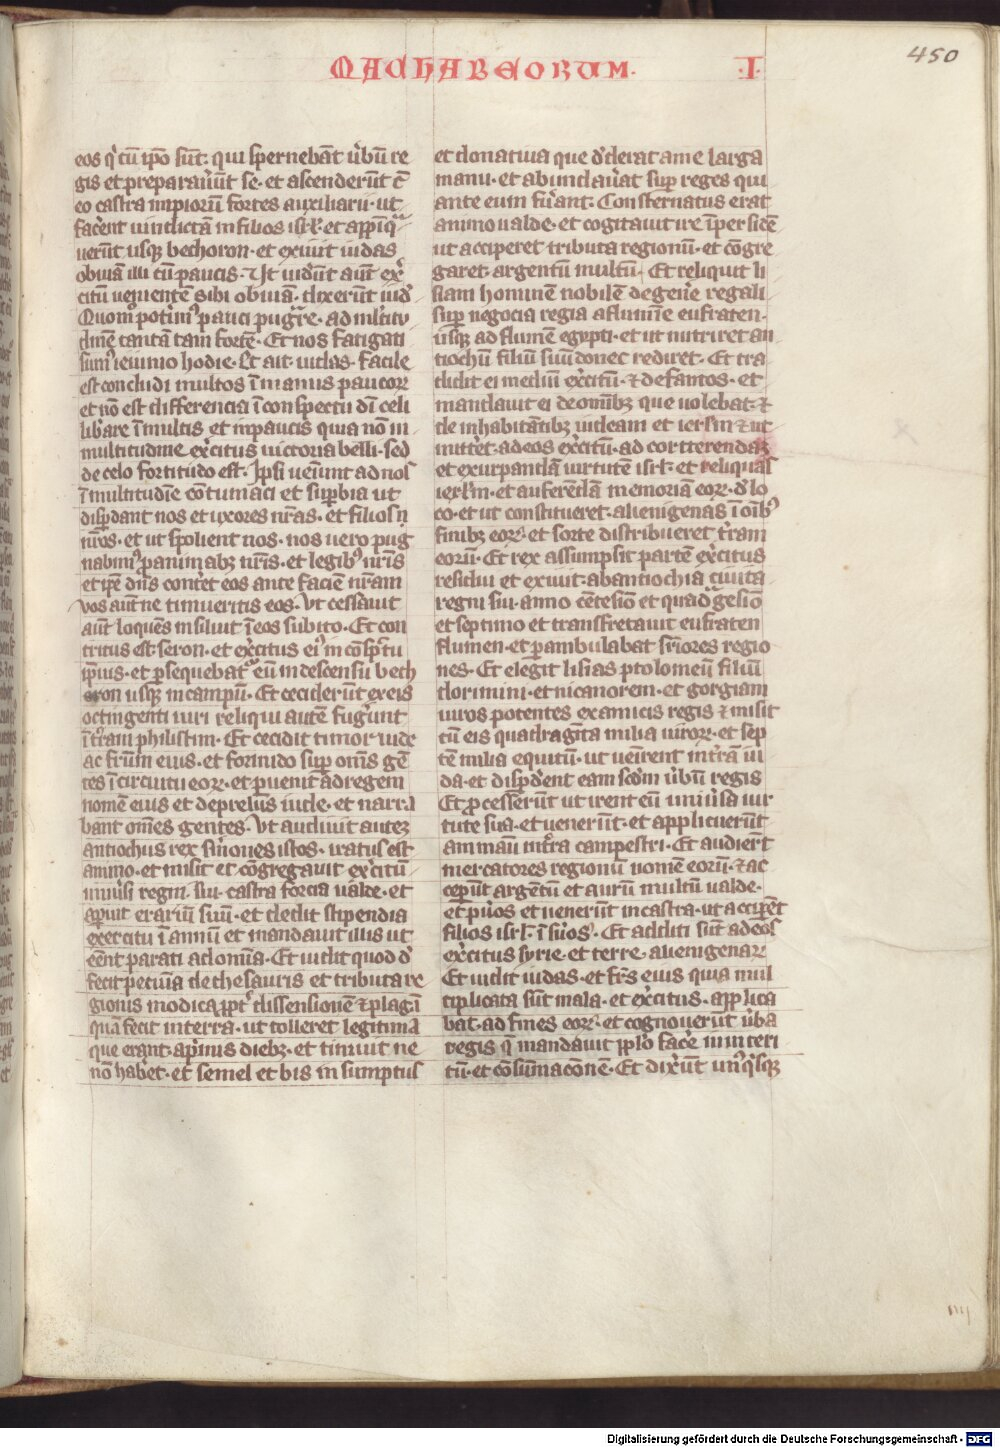 MACHABEORUM. .I.
450
eos q̇ cū ip̄o sūt: qui spernebāt ūbū re
gis et preparauūt se. et ascenderūt c̄
eo castra impiorū fortes auxiliarii. ut
faċent uindictā in filios isrl̄. et app̄iq̄
uerūt usq; bechoron. et exiuit iudas
obuiā illi cū paucis. Ut uidūt aūt ex̄
citū uenientē sibi obuiā. dixerūt iud̄
Quomo potimꝰ pauci pug̃re. ad m̄ltitu
dinē tantā tam fortē. Et nos fatigati
sumꝰ ieiunio hodie. Et ait iudas. facile
est concludi multos ī manus paucoꝝ
et nō est differencia ī conspectu dī celi
libare ī multis et in paucis quia nō in
multitudine ex̄citus uictoria belli. sed
de celo fortitudo est. Ipsi ueniunt ad nos
ī multitudīe cōtumaci et suꝑbia ut
disꝑdant nos et uxores nr̄as. et filios ñ
nr̄os. et ut spolient nos. nos uero pug
nabimꝰ ꝓ animabꝫ nr̄is. et legibꝰ nr̄is
et ip̄e dn̄s contēt eos ante faciē nr̄am
uos aūt ne timueritis eos. Ut cessauit
aūt loquēs insiluit ī eos subito. Et con
tritus est seron. et ex̄citus eiꝰ in cōsp̄tu
ip̄ius. et ꝑsequebatꝰ eū in descensu bech
oron usq; in campū. Et ceciderūt ex eis
octingenti uiri reliqui autē fugerūt
ī t̄ram philistim. Et cecidit timor iude
ac fr̄um eius. et formido suꝑ om̄s gē
tes ī circuitu eoꝝ. et ꝑuenit ad regem
nomē eius et de prelus iude. et narra
bant om̄es gentes. Ut audiuit autem
antiochus rex sm̄ones istos. iratus est
animo. et misit et cōgregauit ex̄citū
uniūsi regni sui. castra forcia ualde. et
aꝑuit erariū suū. et dedit stipendia
exercitu ī annū et mandauit illis ut
eēnt parati ad om̄ia. Et uidit quod d̄
fecit pecunia de thesauris et tributa re
gionis modica ꝓpt̄ dissensionē et plagā
quā fecit in terra. ut tolleret legitima
que erant. a p̄mis diebꝫ. et timuit ne
nō hab̄et. et semel et bis in sumptus
et donatiua que d̄derat ante larga
manu. et abundau̇at suꝑ reges qui
ante eum fu̇ant. Consternatus erat
animo ualde. et cogitauit ire ī persidē
ut acciperet tributa regionū. et cōgre
garet argentū multū. Et reliquit li
siam hominē nobilē de gen̄e regali
suꝑ negocia regia a flumīe eufraten.
usq; ad flumē egypti. et ut nutriret an
tiochū filiū suū donec rediret. Et tra
didit ei mediū ex̄citū. et elefantos. et
mandauit ei de om̄ibꝫ que uolebat. et
de inhabitātibꝫ iudeam et ierl̄m et ut
mittēt. ad eos ex̄citū. ad conterendam
et exturpandā uirtutē isrl̄. et reliquias
ierl̄m. et auferēdā memoriā eoꝝ. d̄ lo
co. et ut constitueret. alienigenas ī oībꝰ
finibꝫ eoꝝ. et sorte distribueret t̄ram
eorū. Et rex assumpsit partē ex̄citus
residui et exiuit. ab antiochia ciuita.
regni sui. anno cētesio et quadgesio
et septimo et transfretauit eufraten
flumen. et ꝑambulabat suꝑiores regio
nes. Et elegit lisias ptolomeū filiū
dorimini. et nicanorem. et gorgiam
uiros potentes ex amicis regis et misit
cū eis quadragita milia uiroꝝ. et sep
tē milia equitū. ut uen̄irent in t̄rā iu
da. et disꝑdent eam sc̄dm ūbū regis
Et ꝓcesserūt ut irent cū uniūsa uir
tute sua. et uenerūt. et applicuerūt
ammaū in t̄ra campestri. Et audiert̄
mercatores regionū nomē eorū. et ac
cepūt argētū et aurū multū ualde.
et pūos et uenerūt in castra. ut acciperēt
filios isrl̄. ī sūos. Et additi sūt ad eos
ex̄citus syrie. et terre. alienigenaꝝ
Et uidit iudas. et fr̄s eius quia mul
tiplicata sūt mala. et ex̄citus. applica
bat. ad fines eoꝝ. et cognouerūt ūba
regis q̄ mandauit pp̄lo faċe in interi
tū. et cōsumacōnē. Et dix̄ūt unꝰqꝰsq;
iiij
Digitalisierung gefördert durch die Deutsche Forschungsgemeinschaft - DFG